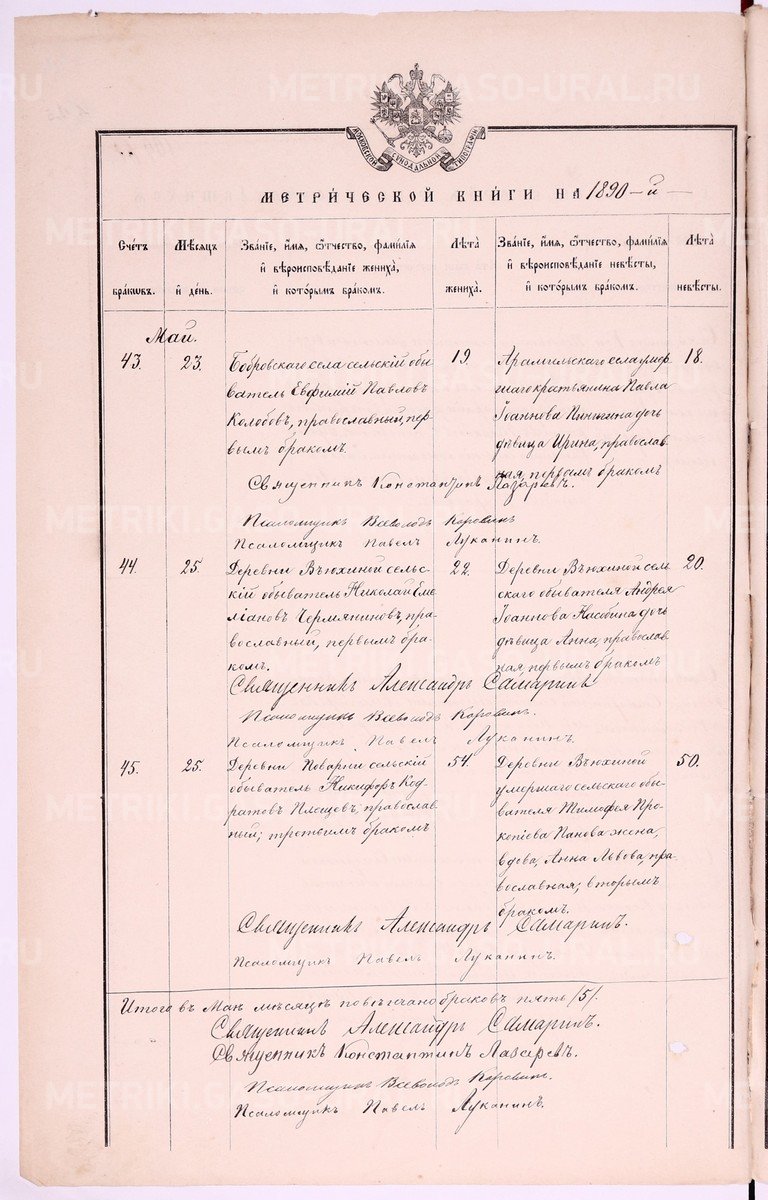 МОСКОВСКОЙ СѴНОДАЛЬНОЙ ТИПОГРАФІИ
МЕТРИ́ЧЕСКОЙ КНИ́ГИ НА 1890-й
Сче́тъ бра́кѡвъ.
Мѣ́сяцъ и҆ де́нь.
Зва́нїе, и҆́мя, ѻ҆́тчество, фамі́лїя и҆ вѣроисповѣ́данїе жениха̀, и҆ кото́рымъ бра́комъ.
Лѣ́та жениха̀.
Зва́нїе, и҆́мя, ѻ҆́тчество, фамі́лїя и҆ вѣроисповѣ́данїе невѣ́сты, и҆ кото́рымъ бра́комъ.
Лѣ́та невѣ́сты.
Май.
43. 23.
Бобровскаго села сельскій обы-
ватель Евфимій Павловъ
Колобовъ, православный, пер-
вымъ бракомъ.
19.
Арамильскаго села умер-
шаго крестьянина Павла
Іоаннова Пиньгина дочь
дѣвица Ирина, православ-
ная, первымъ бракомъ
18.
Священникъ Константинъ Лазаревъ.
Псаломщикъ Всеволодъ Коровинъ
Псаломщикъ Павелъ Луканинъ.
44. 25.
Деревни Вьюхиной сель-
скій обыватель Николай Еме-
ліановъ Чермяниновъ, пра-
вославный, первымъ бра-
комъ.
22.
Деревни Вьюхиной сель-
скаго обывателя Андрея
Іоаннова дочь
дѣвица Анна, православ-
ная, первымъ бракомъ
20.
Священникъ Александръ Самаринъ
Псаломщикъ Всеволодъ Коровинъ.
Псаломщикъ Павелъ Луканинъ.
45. 25.
Деревни Поварни сельскій
обыватель Никифоръ Код-
ратовъ Плещевъ, православ-
ный; третьимъ бракомъ
54.
Деревни Вьюхиной
умершаго сельскаго обы-
вателя Тимофея Про-
копіева Панова жена,
вдова, Анна Львова, пра-
вославная; вторымъ
бракомъ.
50.
Священникъ Александръ Самаринъ.
Псаломщикъ Павелъ Луканинъ.
Итого въ Маѣ мѣсяцѣ повѣнчано браковъ пять /5/.
Священникъ Александръ Самаринъ.
Священникъ Константинъ Лазаревъ.
Псаломщикъ Всеволодъ Коровинъ.
Псаломщикъ Павелъ Луканинъ.